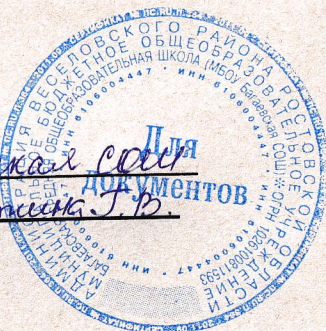 АДМИНИСТРАЦИЯ ВЕСЕЛОВСКОГО РАЙОНА РОСТОВСКОЙ ОБЛАСТИ
МУНИЦИПАЛЬНОЕ БЮДЖЕТНОЕ ОБЩЕОБРАЗОВАТЕЛЬНОЕ УЧРЕЖДЕНИЕ
БАГАЕВСКАЯ СРЕДНЯЯ ОБЩЕОБРАЗОВАТЕЛЬНАЯ ШКОЛА (МБОУ Багаевская СОШ) * ОГРН 1026100811593
ИНН 6106004447 * ИНН 6106004447 * ИНН 6106004447
Для
документов
кая сош
Г.В.